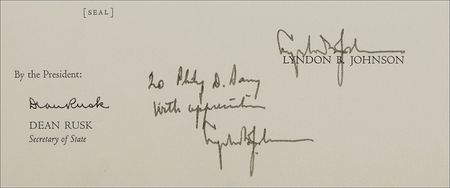 [SEAL]
LYNDON B. JOHNSON
By the President:
Dean Rusk
DEAN RUSK
Secretary of State
To Philip D.
With appreciation
Lyndon B. Johnson